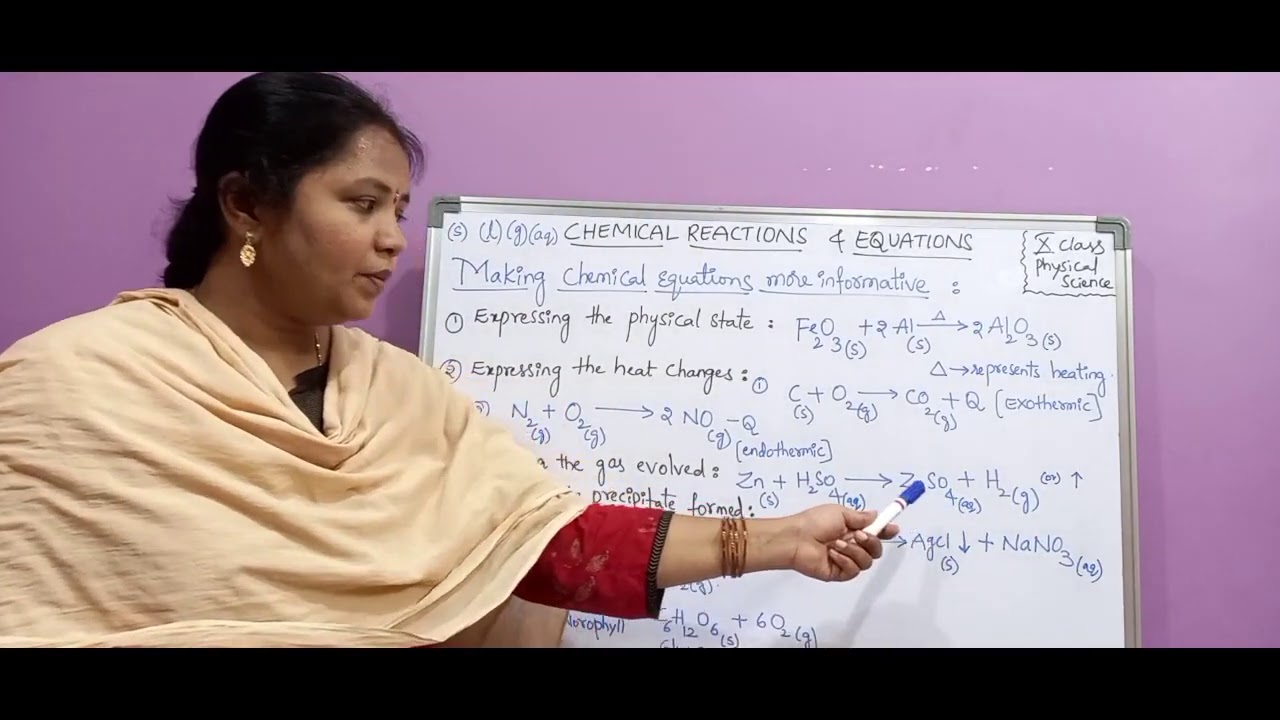 (s) (l) (g) (aq) CHEMICAL REACTIONS & EQUATIONS
X class
Physical
Science
Making Chemical Equations more informative :
① Expressing the physical state : Fe₂O₃(s) + 2 Al(s) —Δ→ 2 Al₂O₃(s)
Δ→represents heating.
② Expressing the heat changes : ① C(s) + O₂(g) ⟶ CO₂(g) + Q [Exothermic]
N₂(g) + O₂(g) ⟶ 2 NO(g) – Q
[endothermic]
the gas evolved : Zn(s) + H₂SO₄(aq) ⟶ SO₄(aq) + H₂(g) (or) ↑
precipitate formed :
→ AgCl(s) ↓ + NaNO₃(aq)
₂(g).
₆H₁₂O₆(s) + 6O₂(g)